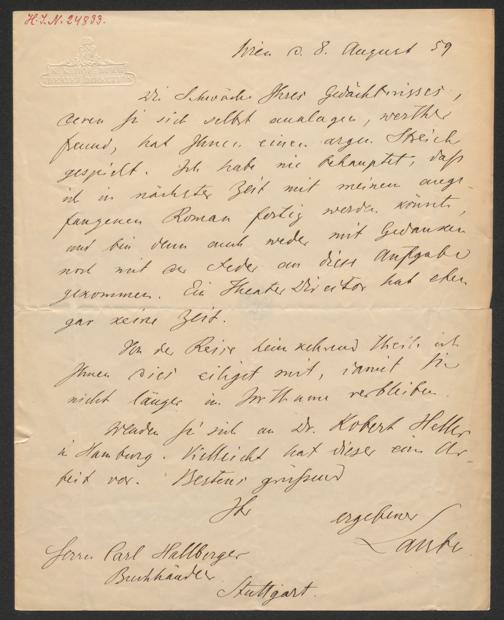 H.I.N. 24833.
Wien d. 8. August 59
Die Schwäche Ihres Gedächtnisses,
deren Sie sich selbst anklagen, werther
Freund, hat Ihnen einen argen Streich
gespielt. Ich habe nie behauptet, daß
ich in nächster Zeit mit meinem ange-
fangenen Roman fertig werden könnte,
und bin denn auch weder mit Gedanken
noch mit der Feder an diese Aufgabe
gekommen. Ein Theater Director hat eben
gar keine Zeit.
Von der Reise heimkehrend theile ich
Ihnen dies eiligst mit, damit Sie
nicht länger im Irrthume verbleiben.
Wenden Sie sich an Dr. Robert Heller
in Hamburg. Vielleicht hat dieser eine Ar-
beit vor. Bestens grüßend
Ihr ergebener
Laube
Herrn Carl Hallberger
Buchhändler
Stuttgart.